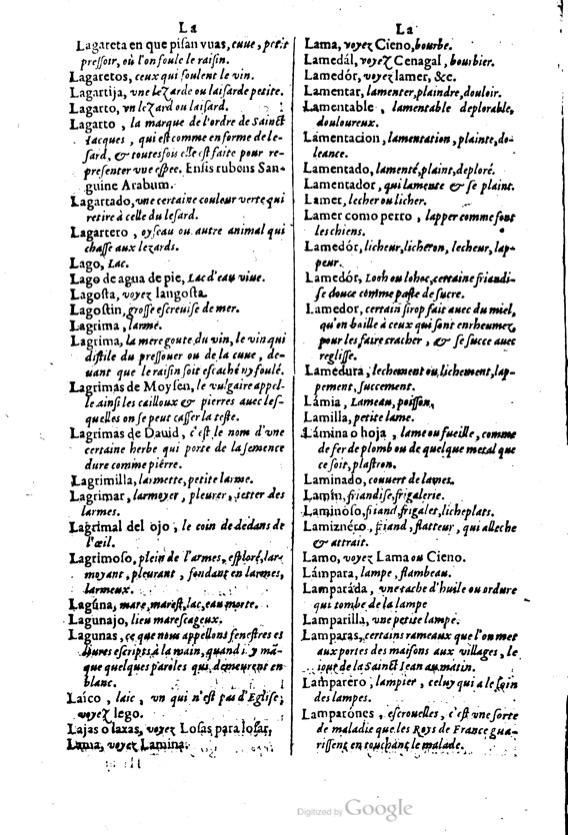 La
Lagareta en que pisan vuas, cuue, petit
pressoir, où l'on foule le raisin.
Lagaretos, ceux qui foulent le vin.
Lagartija, vne lezarde ou laisarde petite.
Lagarto, vn lezard ou laisard.
Lagarto, la marque de l'ordre de Sainct
Iacques, qui est comme en forme de le-
sard, & toutesfois elle est faite pour re-
presenter vne espee. Ensis rubons San-
guine Arabum.
Lagartado, vne certaine couleur verte qui
retire à celle du lesard.
Lagartero, oyseau ou autre animal qui
chasse aux lezards.
Lago, Lac.
Lago de agua de pie, Lac d'eau viue.
Lagosta, voyez langosta.
Lagostin, grosse escreuise de mer.
Lagrima, larme.
Lagrima, la mere goute du vin, le vin qui
distile du pressouer ou de la cuue, de-
uant que le raisin soit escaché ny foulé.
Lagrimas de Moysen, le vulgaire appel-
le ainsi les cailloux & pierres auec les-
quelles on se peut casser la teste.
Lagrimas de Dauid, c'est le nom d'vne
certaine herbe qui porte de la semence
dure comme pierre.
Lagrimilla, larmette, petite larme.
Lagrimar, larmoyer, pleurer, ietter des
larmes.
Lagrimal del ojo, le coin de dedans de
l'œil.
Lagrimoso, plein de l'armes, esploré, lar-
moyant, pleurant, fondant en larmes,
larmeux.
Lagúna, mare, marest, lac, eau morte.
Lagunajo, lieu marescageux.
Lagunas, ce que nous appellons fenestres es
liures escripts à la main, quand i'y mã-
que quelques paroles qui demeurent en
blanc.
Laíco, laic, vn qui n'est pas d'Eglise;
voyez lego.
Lajas o laxas, voyez Losas para losar,
Lama, voyez Lamina.
La
Lama, voyez Cieno, bourbe.
Lamedál, voyez Cenagal, bourbier.
Lamedór, voyez lamer, &c.
Lamentar, lamenter, plaindre, douloir.
Lamentable, lamentable deplorable,
douloureux.
Lamentacion, lamentation, plainte, do-
leance.
Lamentado, lamenté, plaint, deploré.
Lamentador, qui lamente & se plaint.
Lamer, lecher ou licher.
Lamer como perro, lapper comme font
les chiens.
Lamedór, licheur, licheron, lecheur, lap-
peur.
Lamedór, Looh ou lohoc, certaine friandi-
se douce comme paste de sucre.
Lamedor, certain sirop fait auec du miel,
qu'on baille à ceux qui sont enrheumez,
pour les faire cracher, & se succe auec
reglisse.
Lamedura, lechement ou lichement, lap-
pement, succement.
Lámia, Lameau, poisson,
Lamilla, petite lame.
Lámina o hoja, lame ou fueille, comme
de fer de plomb ou de quelque metal que
ce soit, plastron.
Laminado, couuert de lames.
Lamín, friandise, frigalerie.
Laminóso, friand, frigalet, licheplats.
Lamiznéro, friand, flatteur, qui alleche
& attrait.
Lamo, voyez Lama ou Cieno.
Lámpara, lampe, flambeau.
Lamparáda, vne tache d'huile ou ordure
qui tombe de la lampe
Lamparilla, vne petite lampe.
Lamparas, certains rameaux que l'on met
aux portes des maisons aux villages, le
iour de la Sainct Iean au matin.
Lamparéro, lampier, celuy qui a le soin
des lampes.
Lamparónes, escrouelles, c'est vne sorte
de maladie que les Roys de France gua-
rissent en touchant le malade.
Digitized by Google